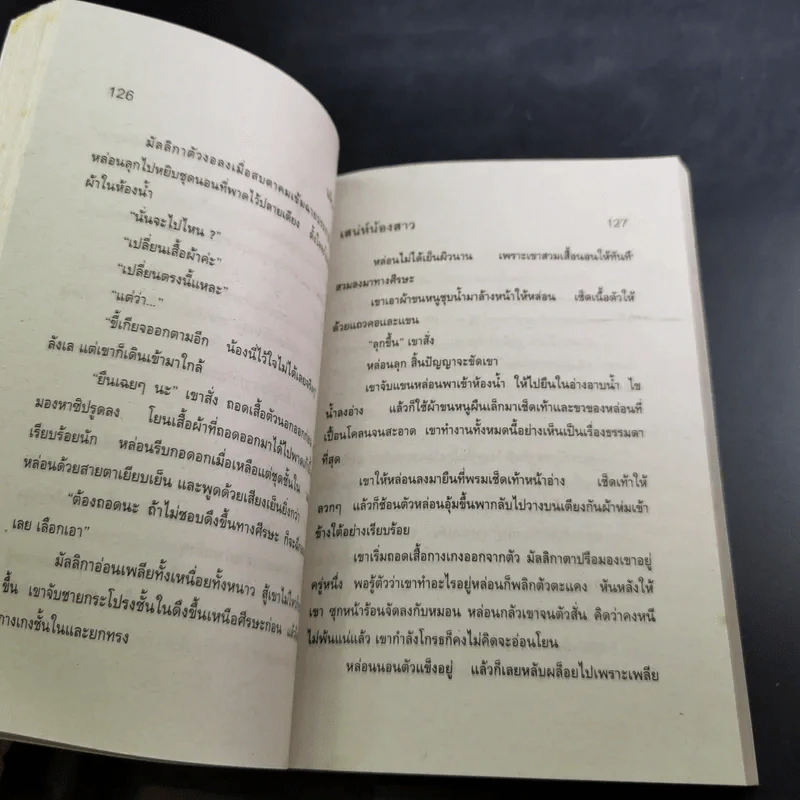 126
มัลลิกาตัวงอลงเมื่อสบตาคมเข้มฉาย
หล่อนลุกไปหยิบชุดนอนที่พาดไว้ปลายเตียง
ผ้าในห้องน้ำ
"นั่นจะไปไหน ?"
"เปลี่ยนเสื้อผ้าค่ะ"
"เปลี่ยนตรงนี้แหละ"
"แต่ว่า..."
"ขี้เกียจออกตามอีก น้องนี่ไว้ใจไม่ได้เลย
ลังเล แต่เขาก็เดินเข้ามาใกล้
"ยืนเฉยๆ นะ" เขาสั่ง ถอดเสื้อตัวนอกออก
มองหาซิปรูดลง โยนเสื้อผ้าที่ถอดออกมาได้ไปพาด
เรียบร้อยนัก หล่อนรีบกอดอกเมื่อเหลือแต่ชุดชั้นใน
หล่อนด้วยสายตาเยียบเย็น และพูดด้วยเสียงเย็นยิ่งกว่า
"ต้องถอดนะ ถ้าไม่ชอบดึงขึ้นทางศีรษะ ก็จะฉีก
เลย เลือกเอา"
มัลลิกาอ่อนเพลียทั้งเหนื่อยทั้งหนาว สู้เขาไม่ไหว
ขึ้น เขาจับชายกระโปรงชั้นในดึงขึ้นเหนือศีรษะก่อน
กางเกงชั้นในและยกทรง
เสน่ห์น้องสาว 127
หล่อนไม่ได้เย็นผิวนาน เพราะเขาสวมเสื้อนอนให้ทันที
สวมลงมาทางศีรษะ
เขาเอาผ้าขนหนูชุบน้ำมาล้างหน้าให้หล่อน เช็ดเนื้อตัวให้
ด้วยแถวคอและแขน
"ลุกขึ้น" เขาสั่ง
หล่อนลุก สิ้นปัญญาจะขัดเขา
เขาจับแขนหล่อนพาเข้าห้องน้ำ ให้ไปยืนในอ่างอาบน้ำ ไข
น้ำลงอ่าง แล้วก็ใช้ผ้าขนหนูผืนเล็กมาเช็ดเท้าและขาของหล่อนที่
เปื้อนโคลนจนสะอาด เขาทำงานทั้งหมดนี้อย่างเห็นเป็นเรื่องธรรมดา
ที่สุด
เขาให้หล่อนลงมายืนที่พรมเช็ดเท้าหน้าอ่าง เช็ดเท้าให้
ลวกๆ แล้วก็ช้อนตัวหล่อนอุ้มขึ้นพากลับไปวางบนเตียงกันผ้าห่มเข้า
ข้างใต้อย่างเรียบร้อย
เขาเริ่มถอดเสื้อกางเกงออกจากตัว มัลลิกาตาปรือมองเขาอยู่
ครู่หนึ่ง พอรู้ตัวว่าเขาทำอะไรอยู่หล่อนก็พลิกตัวตะแคง หันหลังให้
เขา ซุกหน้าร้อนจัดลงกับหมอน หล่อนกลัวเขาจนตัวสั่น คิดว่าคงหนี
ไม่พ้นแน่แล้ว เขากำลังโกรธก็คงไม่คิดจะอ่อนโยน
หล่อนนอนตัวแข็งอยู่ แล้วก็เลยหลับผล็อยไปเพราะเพลีย